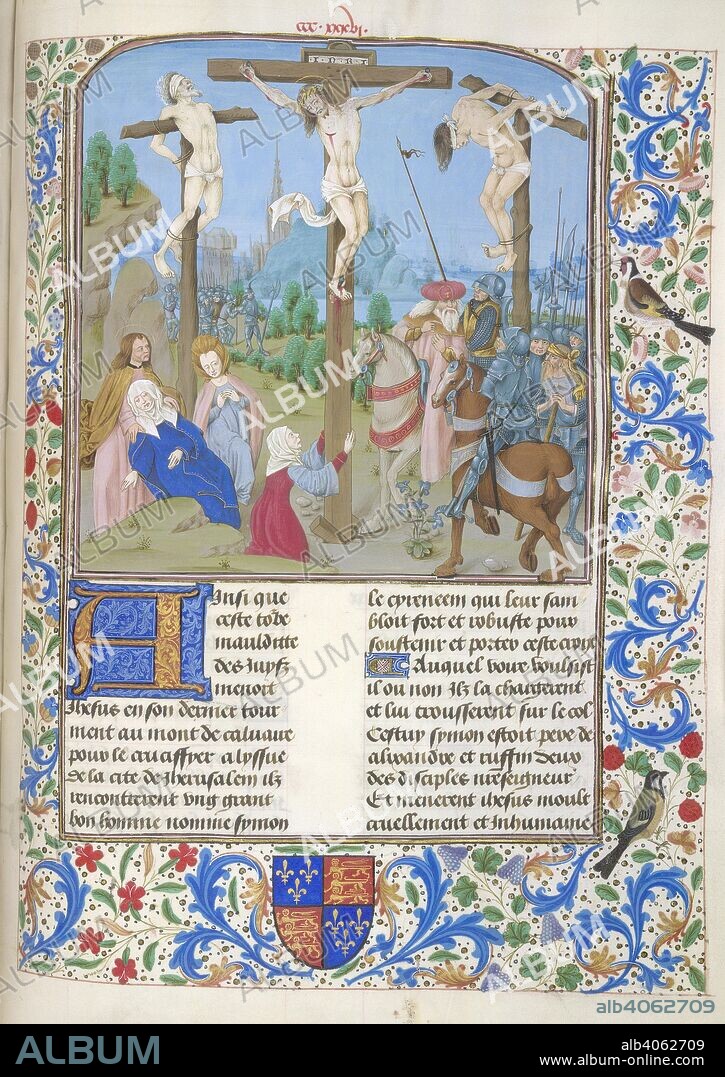 ccc xxxvi.
I N R I
Ainsi que
ceste torbe
maulditte
des Iuyfz
menoit
Ihesus en son dernier tour
ment au mont de caluaire
pour le cruciffyer a lyssue
de la cite de Iherusalem ilz
rencontrerent vng grant
bon homme nomme symon
le cyreneem qui leur sam
bloit fort et robuste pour
soustenir et porter ceste croix
Auquel bour voulsist
il ou non ilz la chargerent
et lui trousserent sur le col
Cestuy symon estoit pere de
alixandre et ruffin deux
des disciples nreseigneur
Et menerent ihesus moult
cruellement et Inhumaine
ALBUM
alb4062709
ALBUM
alb4062709
album-online.com